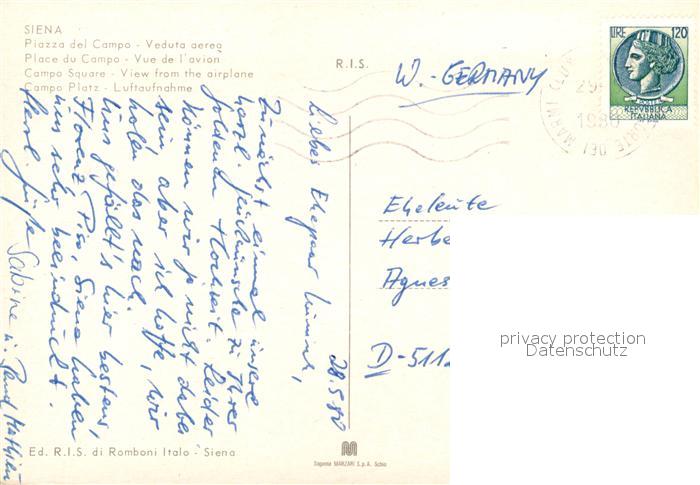 SIENA
Piazza del Campo - Veduta aerea
Place du Campo - Vue de l'avion
Campo Square - View from the airplane
Campo Platz - Luftaufnahme
R.I.S.
LIRE 120
REPVBBLICA
ITALIANA
W.-GERMANY
28.5.80
Liebes Ehepaar
Zunächst einmal unsere
herzl. Glückwünsche zu Ihrer
goldenen Hochzeit. Leider
können wir ja nicht dabei
sein, aber ich hoffe, wir
holen das nach.
Uns gefällt's hier bestens,
Florenz, Pisa, Siena haben
uns sehr beeindruckt.
Herzl. Grüße
Sabine u.
Eheleute
Herbe
Agnes
D-511
privacy protection
Datenschutz
Ed. R.I.S. di Romboni Italo - Siena
Sagoma MANZARI S.p.A. Schio